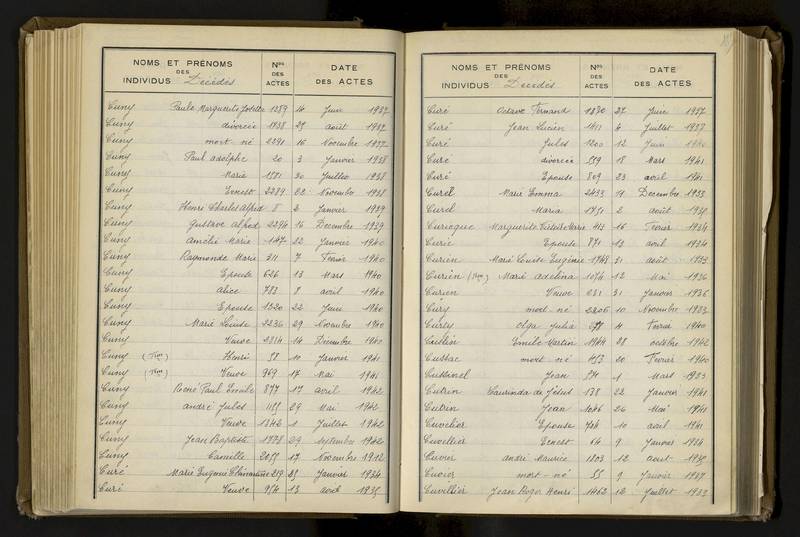 NOMS ET PRÉNOMS DES INDIVIDUS Décédés Nos DES ACTES DATE DES ACTES
Cuny Paule Marguerite 1289 14 Juin 1937
Cuny divorcée 1738 27 août 1937
Cuny mort-né 2291 16 Novembre 1937
Cuny Paul adolphe 20 3 Janvier 1938
Cuny Marie 1581 30 Juillet 1938
Cuny Ernest 2289 22 Novembre 1938
Cuny Henri Charles Alfred 8 2 Janvier 1939
Cuny Gustave Alfred 2294 16 Décembre 1939
Cuny Amélie Marie 147 22 Janvier 1940
Cuny Raymonde Marie 311 7 Février 1940
Cuny Epouse 626 13 Mars 1940
Cuny alice 783 8 avril 1940
Cuny Epouse 1320 22 Juin 1940
Cuny Marie Louise 2236 29 Novembre 1940
Cuny Veuve 2314 14 Décembre 1940
Cuny Henri 58 10 Janvier 1941
Cuny Veuve 969 17 Mai 1941
Cuny René Paul Emile 877 17 avril 1942
Cuny andré Jules 1155 29 Mai 1942
Cuny Veuve 1342 1 Juillet 1942
Cuny Jean Baptiste 1778 29 Septembre 1942
Cuny Camille 2055 17 Novembre 1942
Curé Marie Eugénie 25 Janvier 1934
Curé Veuve 954 13 avril 1935
NOMS ET PRÉNOMS DES INDIVIDUS Décédés Nos DES ACTES DATE DES ACTES
Curé Octave Fernand 1370 27 Juin 1937
Curé Jean Lucien 1411 6 Juillet 1937
Curé Jules 1200 12 Juin 1940
Curé divorcée 559 18 Mars 1941
Curé Epouse 809 23 avril 1941
Curel Marie Emma 2433 19 Décembre 1933
Curel Maria 1751 2 août 1935
Marguerite 413 16 Février 1934
Curie Epouse 871 13 avril 1934
Curien Marie Louise Eugénie 1748 31 août 1933
Curien Marie adelina 1076 12 Mai 1936
Curien Veuve 231 31 Janvier 1936
Cury mort-né 2206 10 Novembre 1933
olga Julia 4 Février 1940
Emile Martin 1944 28 octobre 1942
Cussac mort-né 453 20 Février 1940
Jean 571 1 Mars 1933
Cutrin Laurinda de Jésus 138 22 Janvier 1941
Cutrin Jean 1046 26 Mai 1941
Cuvelier Epouse 704 10 avril 1941
Cuvellier Ernest 64 9 Janvier 1934
Cuvier andré Maurice 1803 12 août 1935
Cuvier mort-né 55 9 Janvier 1937
Cuvillier Jean Roger Henri 1462 12 Juillet 1933